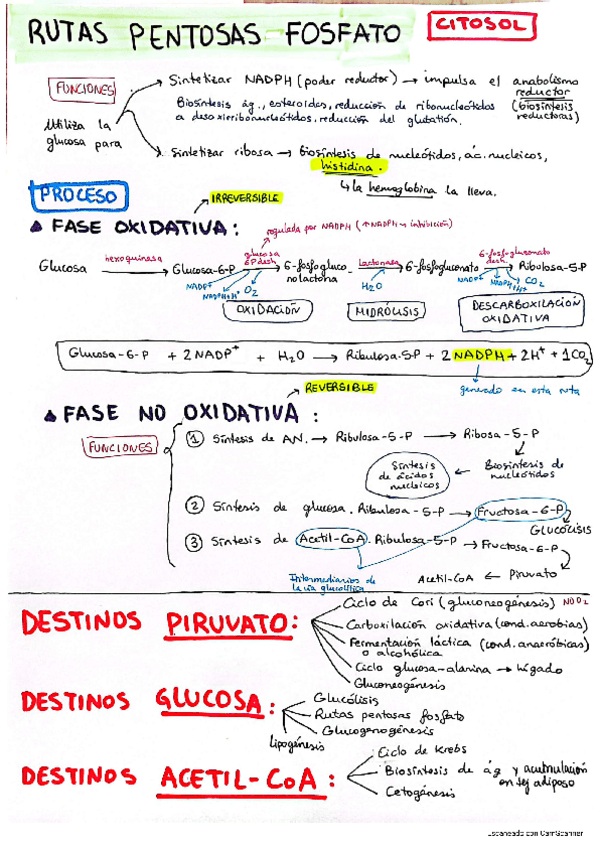 RUTAS PENTOSAS FOSFATO CITOSOL
FUNCIONES
Sintetizar NADPH (poder reductor) → impulsa el anabolismo
reductor
Biosíntesis ág., esteroides, reducción de ribonucleótidos (biosíntesis
a desoxirribonucleótidos, reducción del glutatión. reductoras)
Utiliza la
glucosa para
Sintetizar ribosa → biosíntesis de nucleótidos, ác. nucleicos,
histidina.
↳ la hemoglobina la lleva.
PROCESO
IRREVERSIBLE
▲ FASE OXIDATIVA:
regulada por NADPH (↑NADPH → inhibición)
Glucosa hexoquinasa → Glucosa-6-P glucosa 6P desh. → 6-fosfogluconolactona Lactonasa → 6-fosfogluconato 6-fosfogluconato desh. → Ribulosa-5-P
NADP+ NADPH+H+ O2 H2O NADP+ NADPH+H+ CO2
OXIDACIÓN HIDRÓLISIS DESCARBOXILACIÓN
OXIDATIVA
Glucosa-6-P + 2NADP+ + H2O → Ribulosa-5P + 2NADPH + 2H+ + 1CO2
REVERSIBLE
generado en esta ruta
▲ FASE NO OXIDATIVA:
FUNCIONES
① Síntesis de AN. → Ribulosa-5-P → Ribosa-5-P
Síntesis
de ácidos
nucleicos
← Biosíntesis de
nucleótidos
② Síntesis de glucosa. Ribulosa-5-P → Fructosa-6-P
GLUCÓLISIS
③ Síntesis de Acetil-CoA. Ribulosa-5-P → Fructosa-6-P
Intermediarios de
la vía glucolítica
Acetil-CoA ← Piruvato
DESTINOS PIRUVATO:
Ciclo de Cori (gluconeogénesis) NO O2
Carboxilación oxidativa (cond. aerobias)
Fermentación láctica (cond. anaeróbicas)
o alcohólica
Ciclo glucosa-alanina → hígado
Gluconeogénesis
DESTINOS GLUCOSA:
Glucólisis
Rutas pentosas fosfato
Glucogenogénesis
lipogénesis
DESTINOS ACETIL-CoA:
Ciclo de Krebs
Biosíntesis de ág y acumulación
en tej adiposo
Cetogénesis
Escaneado con CamScanner